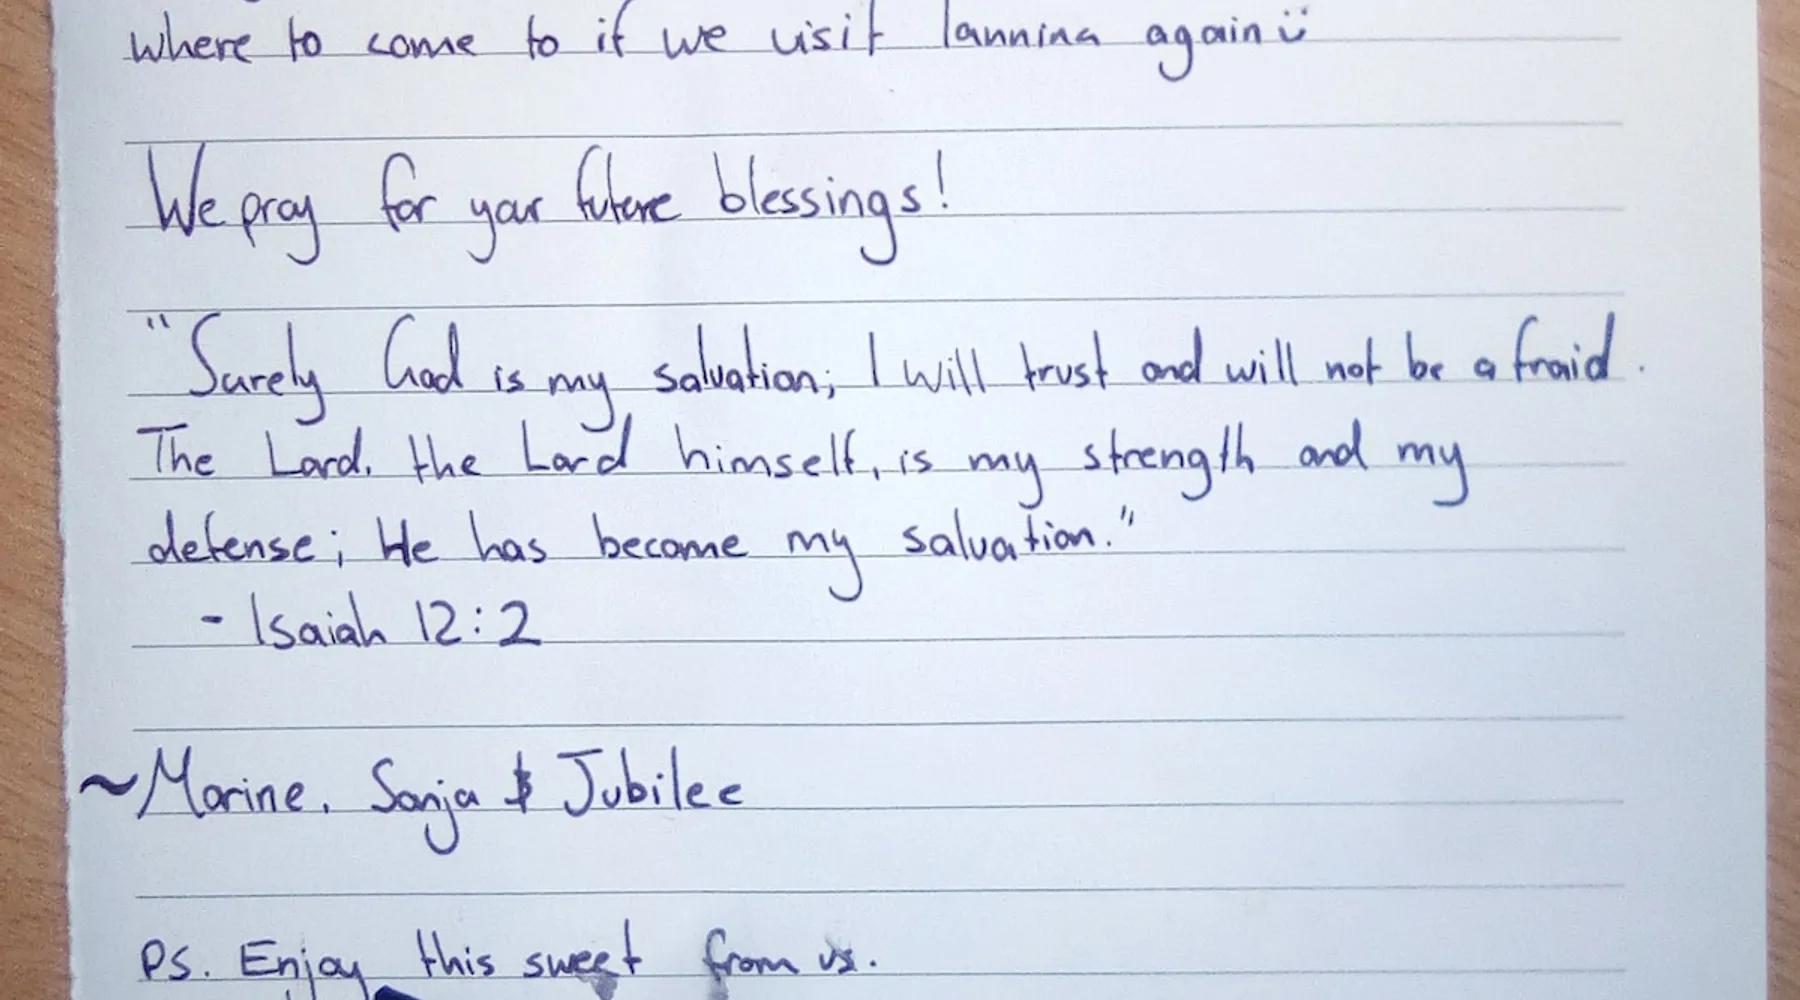 where to come to if we visit Iannina again ü
We pray for your future blessings!
"Surely God is my salvation; I will trust and will not be afraid.
The Lord, the Lord himself, is my strength and my
defense; He has become my salvation."
- Isaiah 12:2
~Marine, Sanja & Jubilee
PS. Enjoy this sweet from us.